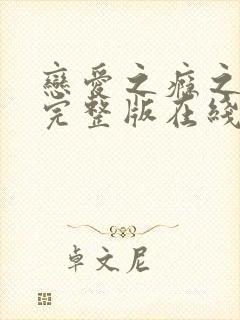 戀愛之癮之
完整版在綫
卓文尼